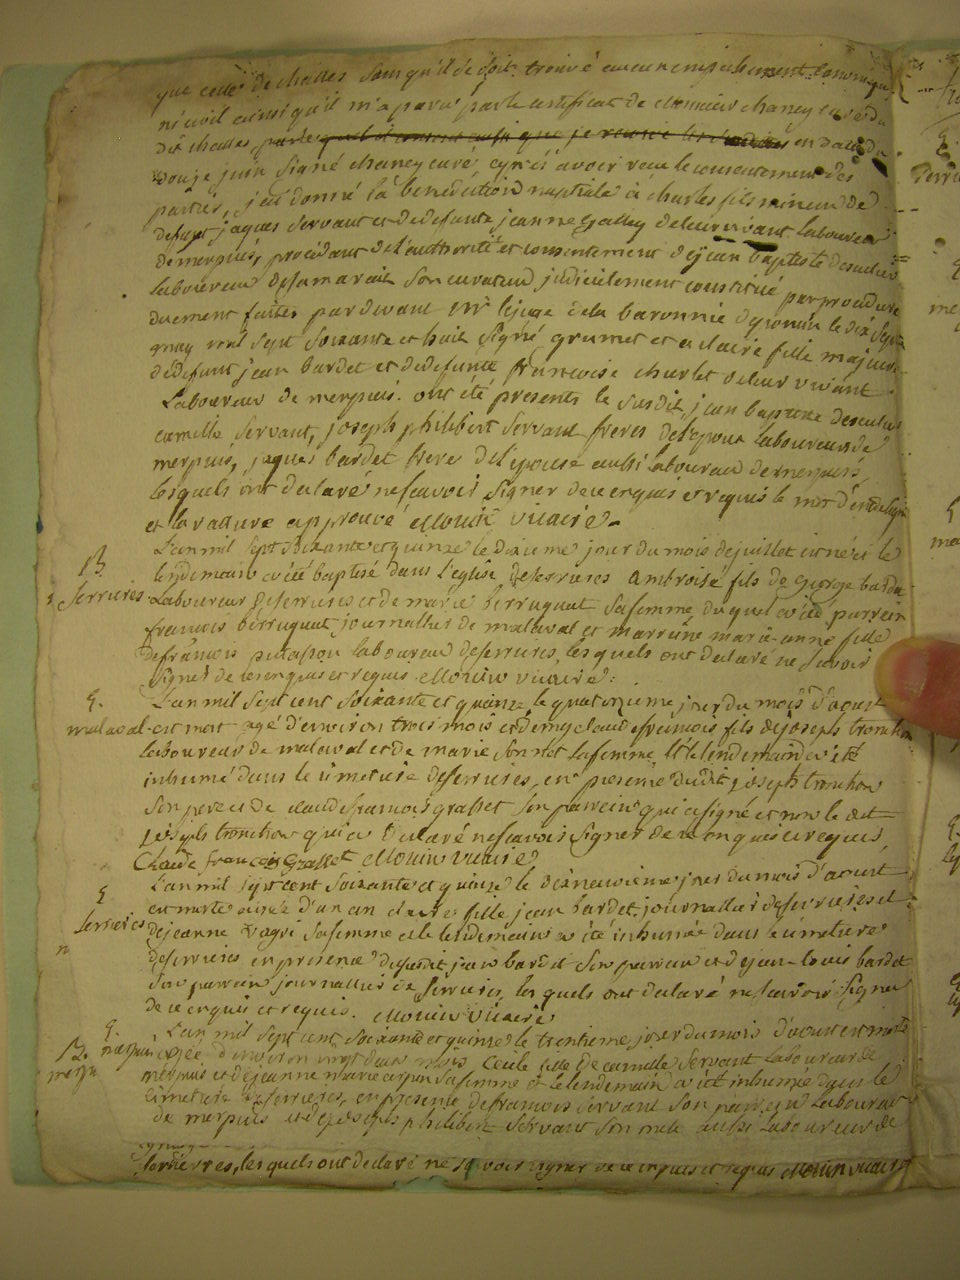 que celle de challes sans qu'il se soit trouvé aucun empeschement canonique
ni civil ainsi qu'il m'a paru par le certificat de monsieur chaney curé du
dit challes en datte du
douze juin signé chaney curé, après avoir reçu le consentement des
parties, j'ai donné la benediction nuptiale à charles fils mineur de
defunt jaques servant et de defunte jeanne Galley de leur vivant laboureur
de merpuis, procédant de l'authorité et consentement de jean baptiste desculies
laboureur de son curateur judicielement constitué par procedure
duement faites pardevant mr le juge de la baronnie de le dix sept
may mil sept soixante et huit signé grumet et a claire fille majeure
de defunt jean bardet et de defunte francoise churlet de leur vivant
Laboureur de merpuis. ont été presents le susdit jean baptiste desculies
camille servant, joseph philibert servant freres de l'epoux laboureurs de
merpuis, jaques bardet frere de l'epouse aussi laboureur de merpuis
lesquels ont declaré ne scavoir signer de ce enquis et requis le mot d'
et la rature approuvé Morin vicaire.
L'an mil sept soixante et quinze le dixieme jour du mois de juillet est né et le
B.
lendemain a été baptisé dans l'eglise de serrieres ambroise fils de george bardet
serrieres
Laboureur de serrieres et de marie berruquat sa femme, du quel a été parrein
francois berruquat journallier de malaval et marrine marie-anne fille
de francois putapou laboureur de serrieres, les quels ont declaré ne scavoir
signer de ce enquis et requis Morin vicaire.
S.
L'an mil sept cent soixante et quinze le quatorzieme jour du mois d'aoust
malaval
est mort agé d'environ trois mois et demy claude francois fils de joseph tronchon
laboureur de malaval et de marie sa femme, et le lendemain a été
inhumé dans le cimetiere de serrieres, en presence dudit joseph tronchon
son pere et de claude francois grasset son parrein qui a signé et non le dit
joseph tronchon qui a declaré ne scavoir signer de ce enquis et requis,
Claude françois Grasset Morin vicaire
L'an mil sept cent soixante et quinze le dixneuvieme jour du mois d'aoust
S
est morte agée d'un an claire fille jean bardet journallier de serrieres et
serrieres
de jeanne sa femme et le lendemain a été inhumée dans le cimetiere
de serrieres en presence dudit jean bardet son et de jean-louis bardet
son parrein journallier de serrieres, les quels ont declaré ne scavoir signer
de ce enquis et requis. Morin vicaire
S.
L'an mil sept cent soixante et quinze le trentieme jour du mois d'aoust est morte
merpuis
agée d'environ vingt deux mois Cecile fille de camille servant Laboureur de
merpuis et de jeanne marie sa femme et le lendemain a été inhumée dans le
cimetiere de serrieres, en presence de francois servant son parrein Laboureur
de merpuis et de joseph philibert servant son oncle aussi Laboureur de
serrierres, lesquels ont declaré ne sçavoir signer de ce enquis et requis Morin vicaire